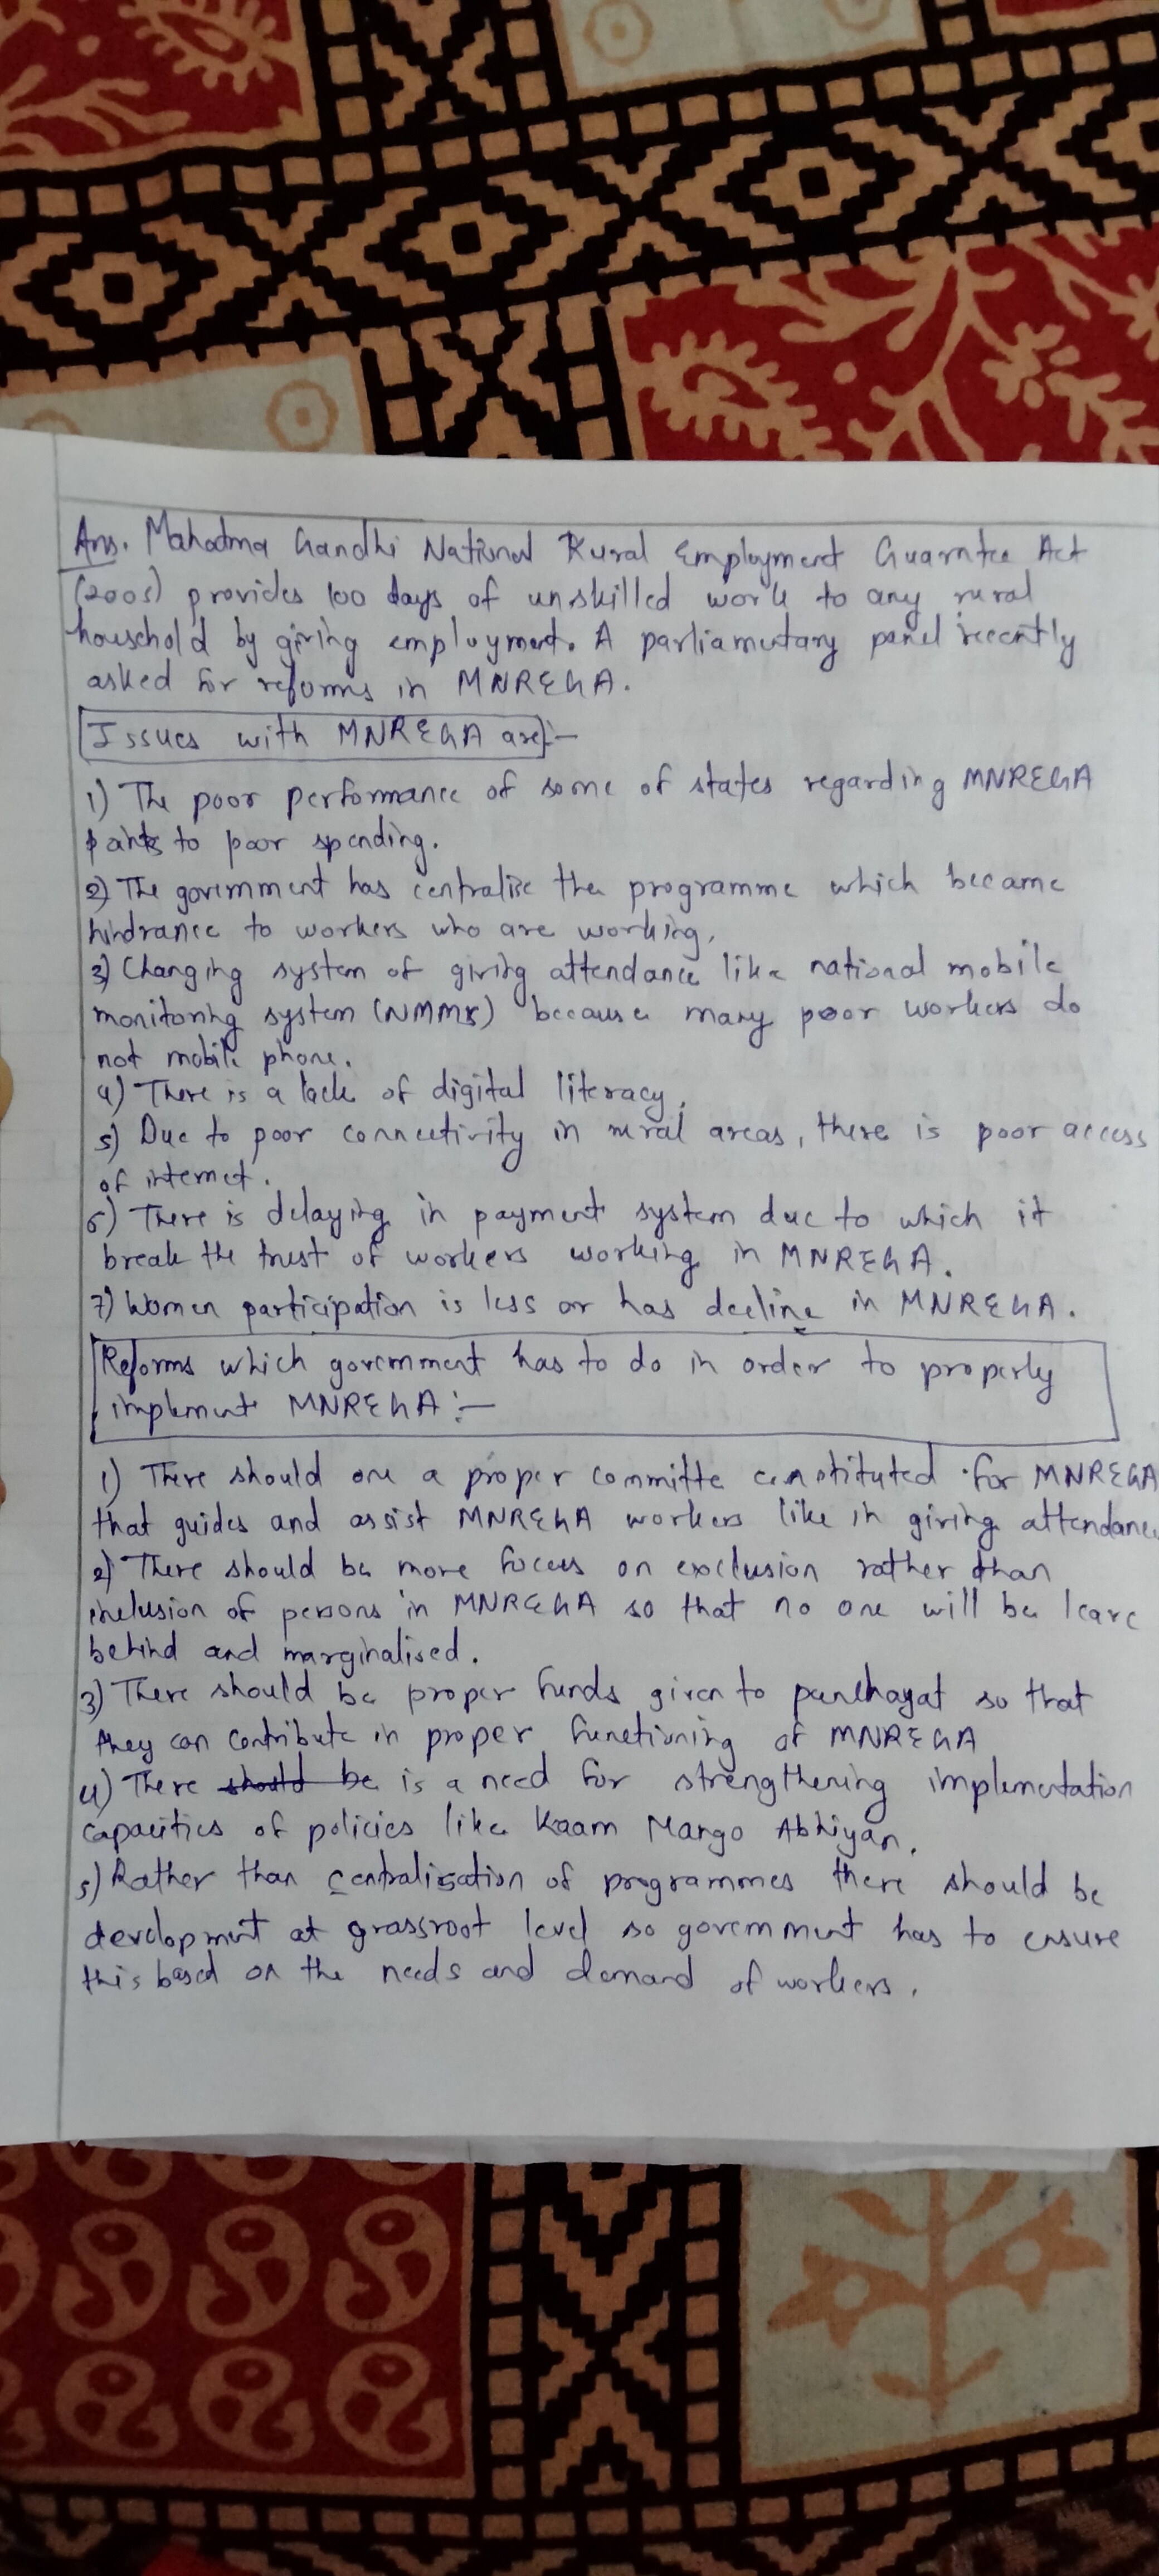 Ans. Mahatma Gandhi National Rural Employment Guarntee Act
(2005) provides 100 days of unskilled work to any rural
household by giving employment. A parliamentary panel recently
asked for reforms in MNREGA.
Issues with MNREGA are:-
1) The poor performance of some of states regarding MNREGA
to poor spending.
2) The government has centralise the programme which became
hindrance to workers who are working.
3) Changing system of giving attendance like national mobile
monitoring system (NMMS) because many poor workers do
not mobile phone.
4) There is a lack of digital literacy.
5) Due to poor connectivity in rural areas, there is poor access
of internet.
6) There is delaying in payment system due to which it
break the trust of workers working in MNREGA.
7) Women participation is less or has decline in MNREGA.
Reforms which government has to do in order to properly
implement MNREGA :-
1) There should are a proper committe constituted for MNREGA
that guides and assist MNREGA workers like in giving attendance
2) There should be more focus on exclusion rather than
inclusion of persons in MNREGA so that no one will be leave
behind and marginalised.
3) There should be proper funds given to panchayat so that
they can contribute in proper functioning of MNREGA
4) There should be is a need for strengthening implementation
capacities of policies like Kaam Mango Abhiyan.
5) Rather than centralisation of programmes there should be
development at grassroot level so government has to ensure
this based on the needs and demand of workers.